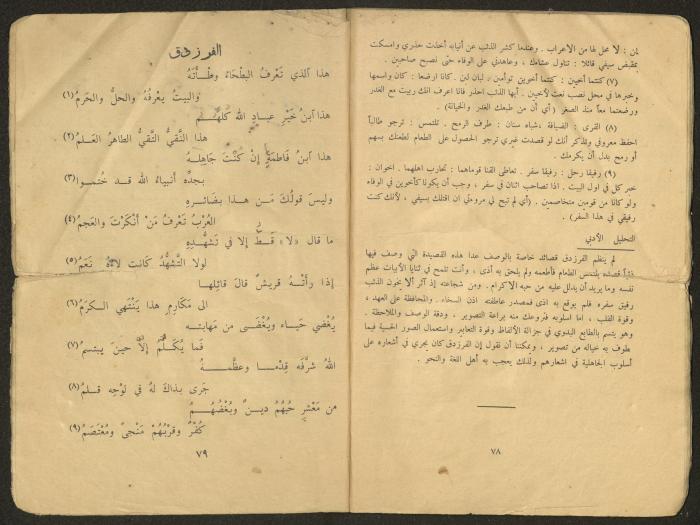 لمن : لا محل لها من الاعراب . وعندما كشر الذئب عن أنيابه أخذت حذري وامسكت
بمقبض سيفي قائلا : تناول عشاءك ، وعاهدني على الوفاء حتى نصبح صاحبين .
(٧) كنتما أخيين : كنتما أخوين توأمين . لبان لبن . كانا ارضعا : كان واسمها
وخبرها في محل نصب نعت لأخيين . أيها الذئب احذر فانا اعرف انك ربيت مع الغدر
ورضعتما معاً منذ الصغر ( أي أن من طبعك الغدر والخيانة ) .
(٨) القرى : الضيافة . شباه سنان : طرف الرمح . تلتمس : ترجو طالباً
احفظ معروفي وتذكر أنك لو قصدت غيري ترجو الحصول على الطعام لطعنك بسهم
أو رمح بدل أن يكرمك .
(٩) رفيقا رحل : رفيقا سفر . تعاطى القنا قوماهما : تحارب اهلهما . اخوان :
خبر كل في اول البيت . اذا تصاحب اثنان في سفر ، وجب أن يكونا كأخوين في الوفاء
ولو كانا من قومين متخاصمين . ( أي لم تبح لي مروءتي ان اقتلك بسيفي ، لأنك كنت
رفيقي في هذا السفر ) .
التحليل الأدبي
لم ينظم الفرزدق قصائد خاصة بالوصف عدا هذه القصيدة التي وصف فيها
ذئباً قصده يلتمس الطعام فأطعمه ولم يلحق به أذى ، وأنت تلمح في ثنايا الأبيات عظم
نفسه وما يريد أن يدلل عليه من حبه الاكرام . ومن شجاعته إذ آثر ألا يخون الذئب
رفيق سفره فلم يوقع به اذى فمصدر عاطفته اذن السخاء . والمحافظة على العهد ،
وقوة القلب ، اما اسلوبه فيروعك منه براعة التصوير ، ودقة الوصف والملاحظة .
وهو يتسم بالطابع البدوي في جزالة الألفاظ وقوة التعابير واستعمال الصور الحسية فيما
طوف به خياله من تصوير ، ويمكننا أن نقول إن الفرزدق كان يجري في أشعاره على
أسلوب الجاهلية في اشعارهم ولذلك يعجب به أهل اللغة والنحو .
٧٨
الفرزدق
هذا الذي تَعْرفُ البَطحَاءُ وطْأتَهُ
والبيتُ يعْرفُهُ والحلُّ والحَرمُ (١)
هذا ابنُ خَيْرِ عبادِ اللهِ كلِّهُمِ
هذا التَّقيُّ النَّقيُّ الطاهرُ العَلمُ (٢)
هذا ابنُ فاطمةٍ إنْ كُنْتَ جَاهِلهُ
بجدِّه أنبياءُ الله قد خُتموا (٣)
وليسَ قولكَ مَن هذا بضَائرهِ
العُرْبُ تَعرفُ مَنْ أنكَرْتَ والعَجمُ (٤)
ما قال «لا» قَطُّ إلا في تَشهُّدِهِ
لولا التَّشهُّدُ كانت لاءَهُ نَعَمُ (٥)
إذا رأتْهُ قريشٌ قالَ قائِلها
الى مكَارِمِ هذا يَنْتَهي الكَرَمُ (٦)
يُغْضي حَياءً ويُغْضَى من مَهابَتِه
فَما يُكلَّمُ إلاَّ حينَ يبتَسمُ (٧)
اللهُ شرَّفَه قِدْماً وعظَّمهُ
جَرى بذاكَ لهُ في لوْحِه قلمُ (٨)
من مَعْشرٍ حُبُّهُم دينٌ وبُغْضُهُمُ
كُفْرٌ وقرْبُهُمُ مَنْجىً ومُعْتَصَمُ (٩)
٧٩